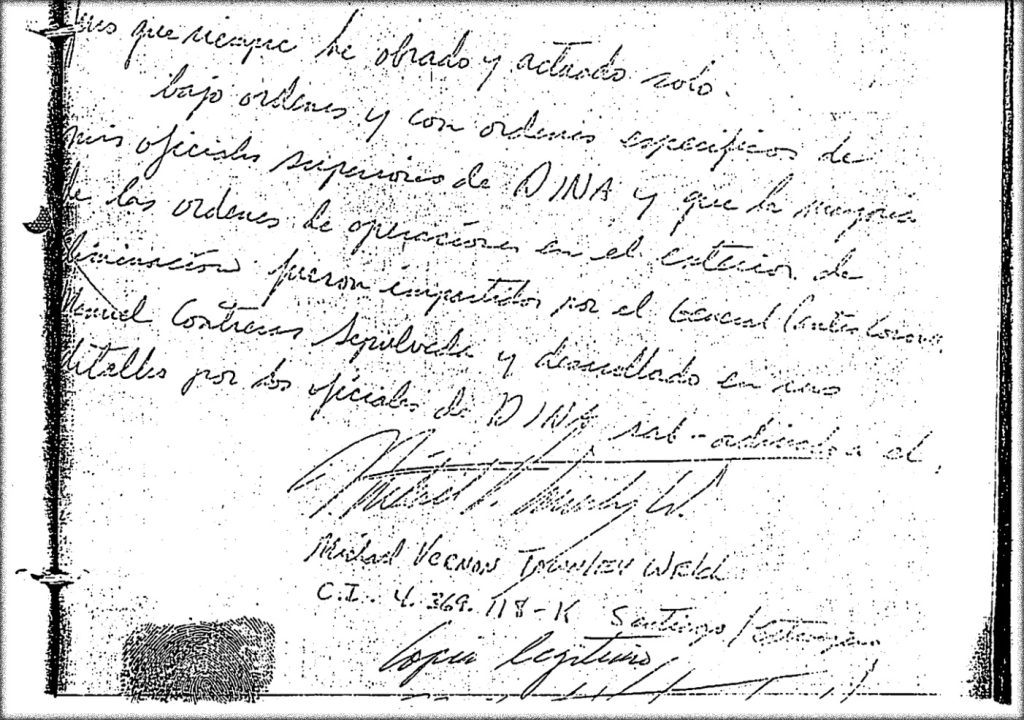 que siempre he obrado y actuado solo.
bajo ordenes y con ordenes especificos de
mis oficiales superiores de DINA y que la mayoria
de las ordenes de operaciones en el exterior de
eliminación fueron impartidos por el General
Manuel Contreras Sepulveda y desarrollado en sus
detalles por los oficiales de DINA sub-
Michael Vernon Townley Welch
C.I. 4.369.118-K Santiago
Copia legitimo